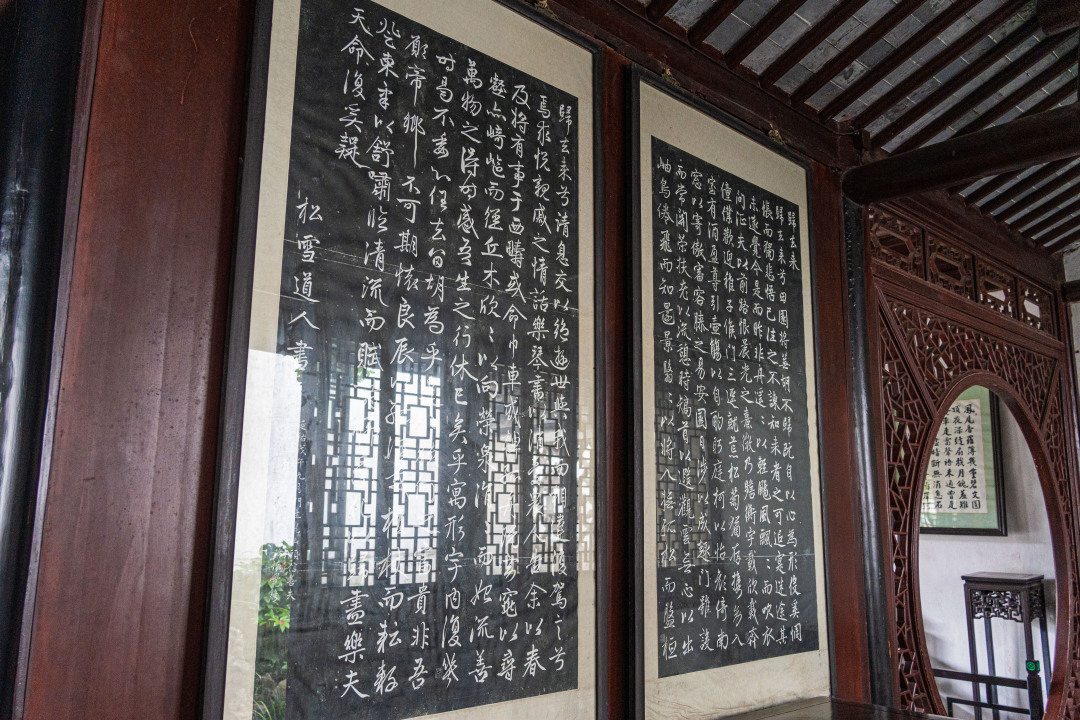 歸去来
歸去来兮田園將蕪胡不歸既自以心為形役奚惆
悵而獨悲悟已往之不諫知来者之可追寔迷途其
未遠覺今是而昨非舟遥〻以輕颺風飄〻而吹衣
問征夫以前路恨晨光之熹微乃瞻衡宇載欣載奔
僮僕歡迎稚子候門三逕就荒松菊猶存攜幼入
室有酒盈尊引壺觴以自酌眄庭柯以怡顏倚南
窓以寄傲審容膝之易安園日涉以成趣門雖設
而常關策扶老以流憩時矯首以遐觀雲無心以出
岫鳥倦飛而知還景翳〻以將入撫孤松而盤桓
歸去来兮請息交以絕遊世與我而相遺復駕言兮
焉求悦親戚之情話樂琴書以消憂農人告余以春
及將有事于西疇或命巾車或棹孤舟既窈窕以尋
壑亦崎嶇而經丘木欣〻以向榮泉涓〻而始流善
萬物之得時感吾生之行休已矣乎寓形宇内復幾
時曷不委心任去留胡為乎富貴非吾
願帝鄉不可期懷良辰以孤往或植杖而耘耔
登東皋以舒嘯臨清流而賦歸盡樂夫
天命復奚疑
松雪道人書
鳳尾香羅薄幾重碧文圓
頂夜深縫扇裁月魄羞難
車走雷聲語未通曾是
暗斷無消息石